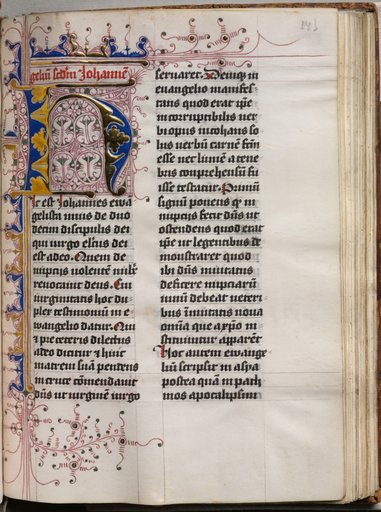 143
gelium secundum Iohannem
Hic est Johannes ewa
gelista unus de duo
decim discipulis dei
qui virgo electus dei
est a deo. Quem de
nuptiis volentem nubere
revocavit deus. Cui
virginitatis hoc du
plex testimonium in e
wangelio datur. Qui
et pre ceteris dilectus
a deo dicitur et huic
matrem suam pendens
in cruce commendavit
dominus ut virginem virgo
servaret. Denique in
evangelio manifes
tans quod erat ipse
incorruptibilis ver
bi opus inchoans so
lus verbum carnem factum
esse nec lumen a tene
bris comprehensum fu
isse testatur. Primum
signum ponens quod in
nuptiis fecit dominus ut
ostendens quod erat
ipse ut legentibus de
monstraret quod
ibi dominus invitatus
deficere nuptiarum
vinum debeat veteri
bus immutatis nova
omnia que a christo in
stituuntur appareant
Hoc autem ewange
lium scripsit in asya
postea quam in path
mos apocalipsim